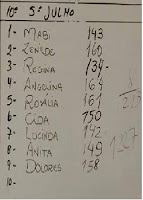 10º 5º JULHO
1- MABI 143
2- ZENILDE 160
3- REGINA 134-
4- ANGELINA 164
5- ROSÁLIA 161
6- CIDA 750
7- LUCINDA 142
8- ANITA 149
9- DOLORES 158
10-